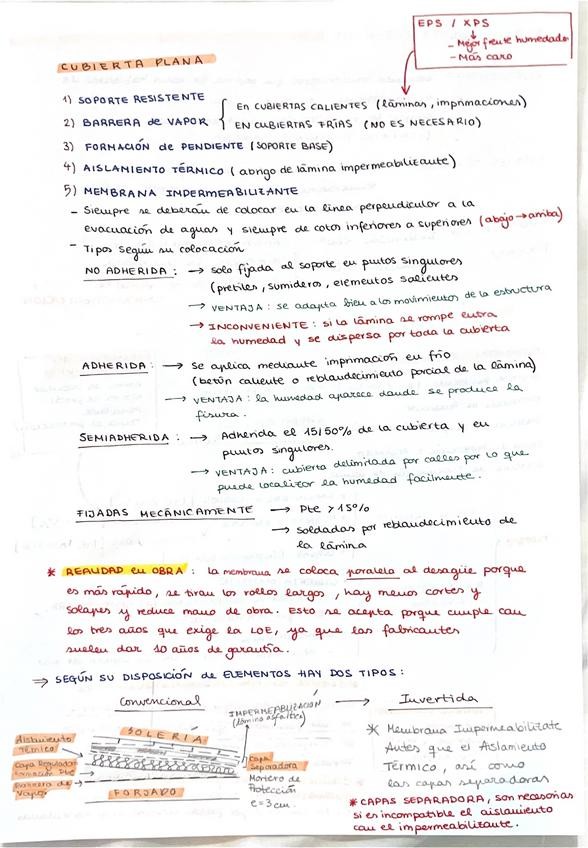 EPS / XPS
- Mejor frente humedades
- Más caro
CUBIERTA PLANA
1) SOPORTE RESISTENTE
2) BARRERA de VAPOR
EN CUBIERTAS CALIENTES (láminas, imprimaciones)
EN CUBIERTAS FRÍAS (NO ES NECESARIO)
3) FORMACIÓN de PENDIENTE (SOPORTE BASE)
4) AISLAMIENTO TÉRMICO (abrigo de lámina impermeabilizante)
5) MEMBRANA IMPERMEABILIZANTE
- Siempre se deberán de colocar en la línea perpendicular a la
evacuación de aguas y siempre de cotas inferiores a superiores (abajo → arriba)
- Tipos según su colocación
NO ADHERIDA : → solo fijada al soporte en puntos singulares
(pretiles, sumideros, elementos salientes
→ VENTAJA : se adapta bien a los movimientos de la estructura
→ INCONVENIENTE : si la lámina se rompe entra
la humedad y se dispersa por toda la cubierta
ADHERIDA : → Se aplica mediante imprimación en frío
(betún caliente o reblandecimiento parcial de la lámina)
→ VENTAJA : la humedad aparece donde se produce la
fisura.
SEMIADHERIDA : → Adherida el 15/50% de la cubierta y en
puntos singulares.
→ VENTAJA : cubierta delimitada por calles por lo que
puede localizar la humedad facilmente.
FIJADAS MECÁNICAMENTE → Pte > 15%
→ soldadas por reblandecimiento de
la lámina
* REALIDAD en OBRA : la membrana se coloca paralela al desagüe porque
es más rápido, se tiran los rollos largos, hay menos cortes y
solapes y reduce mano de obra. Esto se acepta porque cumple con
los tres años que exige la LOE, ya que los fabricantes
suelen dar 10 años de garantía.
⇒ SEGÚN SU DISPOSICIÓN de ELEMENTOS HAY DOS TIPOS :
Convencional → Invertida
IMPERMEABILIZACIÓN
(lámina asfáltica)
SOLERÍA
Aislamiento
Térmico
Capa Regulador
formación Pte
Barrera de
Vapor
FORJADO
Capa
Separadora
Mortero de
Protección
e = 3 cm.
* Membrana Impermeabilizate
Antes que el Aislamiento
Térmico, así como
las capas separadoras
* CAPAS SEPARADORA, son necesarias
si es incompatible el aislamiento
con el impermeabilizante.